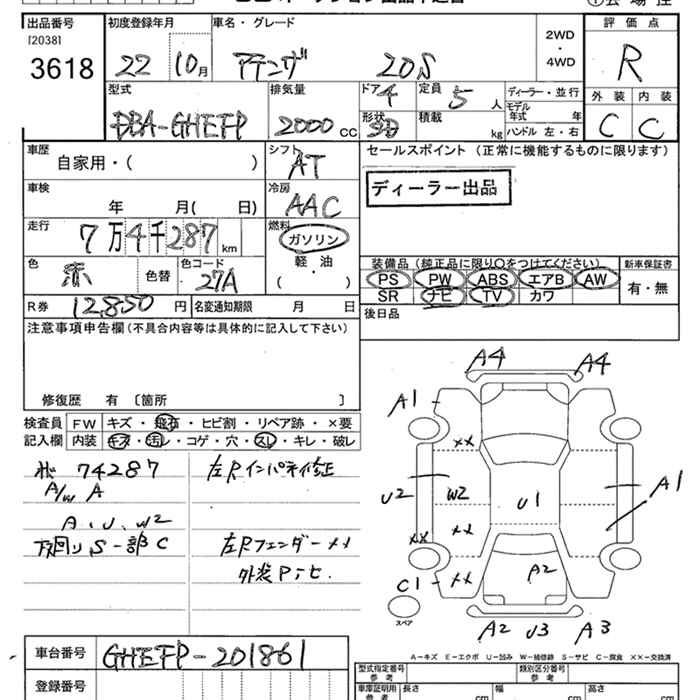 出品番号 初度登録年月 車名・グレード 2WD・4WD 評価点
[2038]
3618 22 10月 アテンザ 20S R
型式 排気量 ドア 4 定員 5人 ディーラー・並行 外装 内装
DBA-GHEFP 2000cc 形状 積載 kg モデル年式 年 C C
ハンドル 左・右
車歴 シフト AT セールスポイント (正常に機能するものに限ります)
自家用・( )
ディーラー出品
車検 年 月( 日) 冷房 AAC
走行 7万4千287km 燃料 ガソリン・軽油 ( )
装備品 (純正品に限り○をつけてください) 新車保証書
色 赤 色替 色コード 27A
PS PW ABS エアB AW 有・無
SR ナビ TV カワ
R券 12,850円 名変通知期限 月 日
後日品
注意事項申告欄 (不具合内容等は具体的に記入して下さい)
修復歴 有 〔箇所 〕
検査員記入欄 FW キズ・飛石・ヒビ割・リペア跡・×要
内装 キズ・汚レ・コゲ・穴・スレ・キレ・破レ
74287 左Rインパネ修正
A/W A
A、U、W2
下回り、S一部C 左Rフェンダー××
外装
A4 A4
A1
××
U2 W2 U1 A1
×× ××
C1 ×× A2
スペア
A2 U3 A3
A-キズ E-エクボ U-凹み W-補修跡 S-サビ C-腐食 ××-交換
車台番号 GHEFP-201861
登録番号
型式指定番号 参考 類別区分番号 参考
車庫証明用 参考 長さ cm 幅 cm 高さ cm